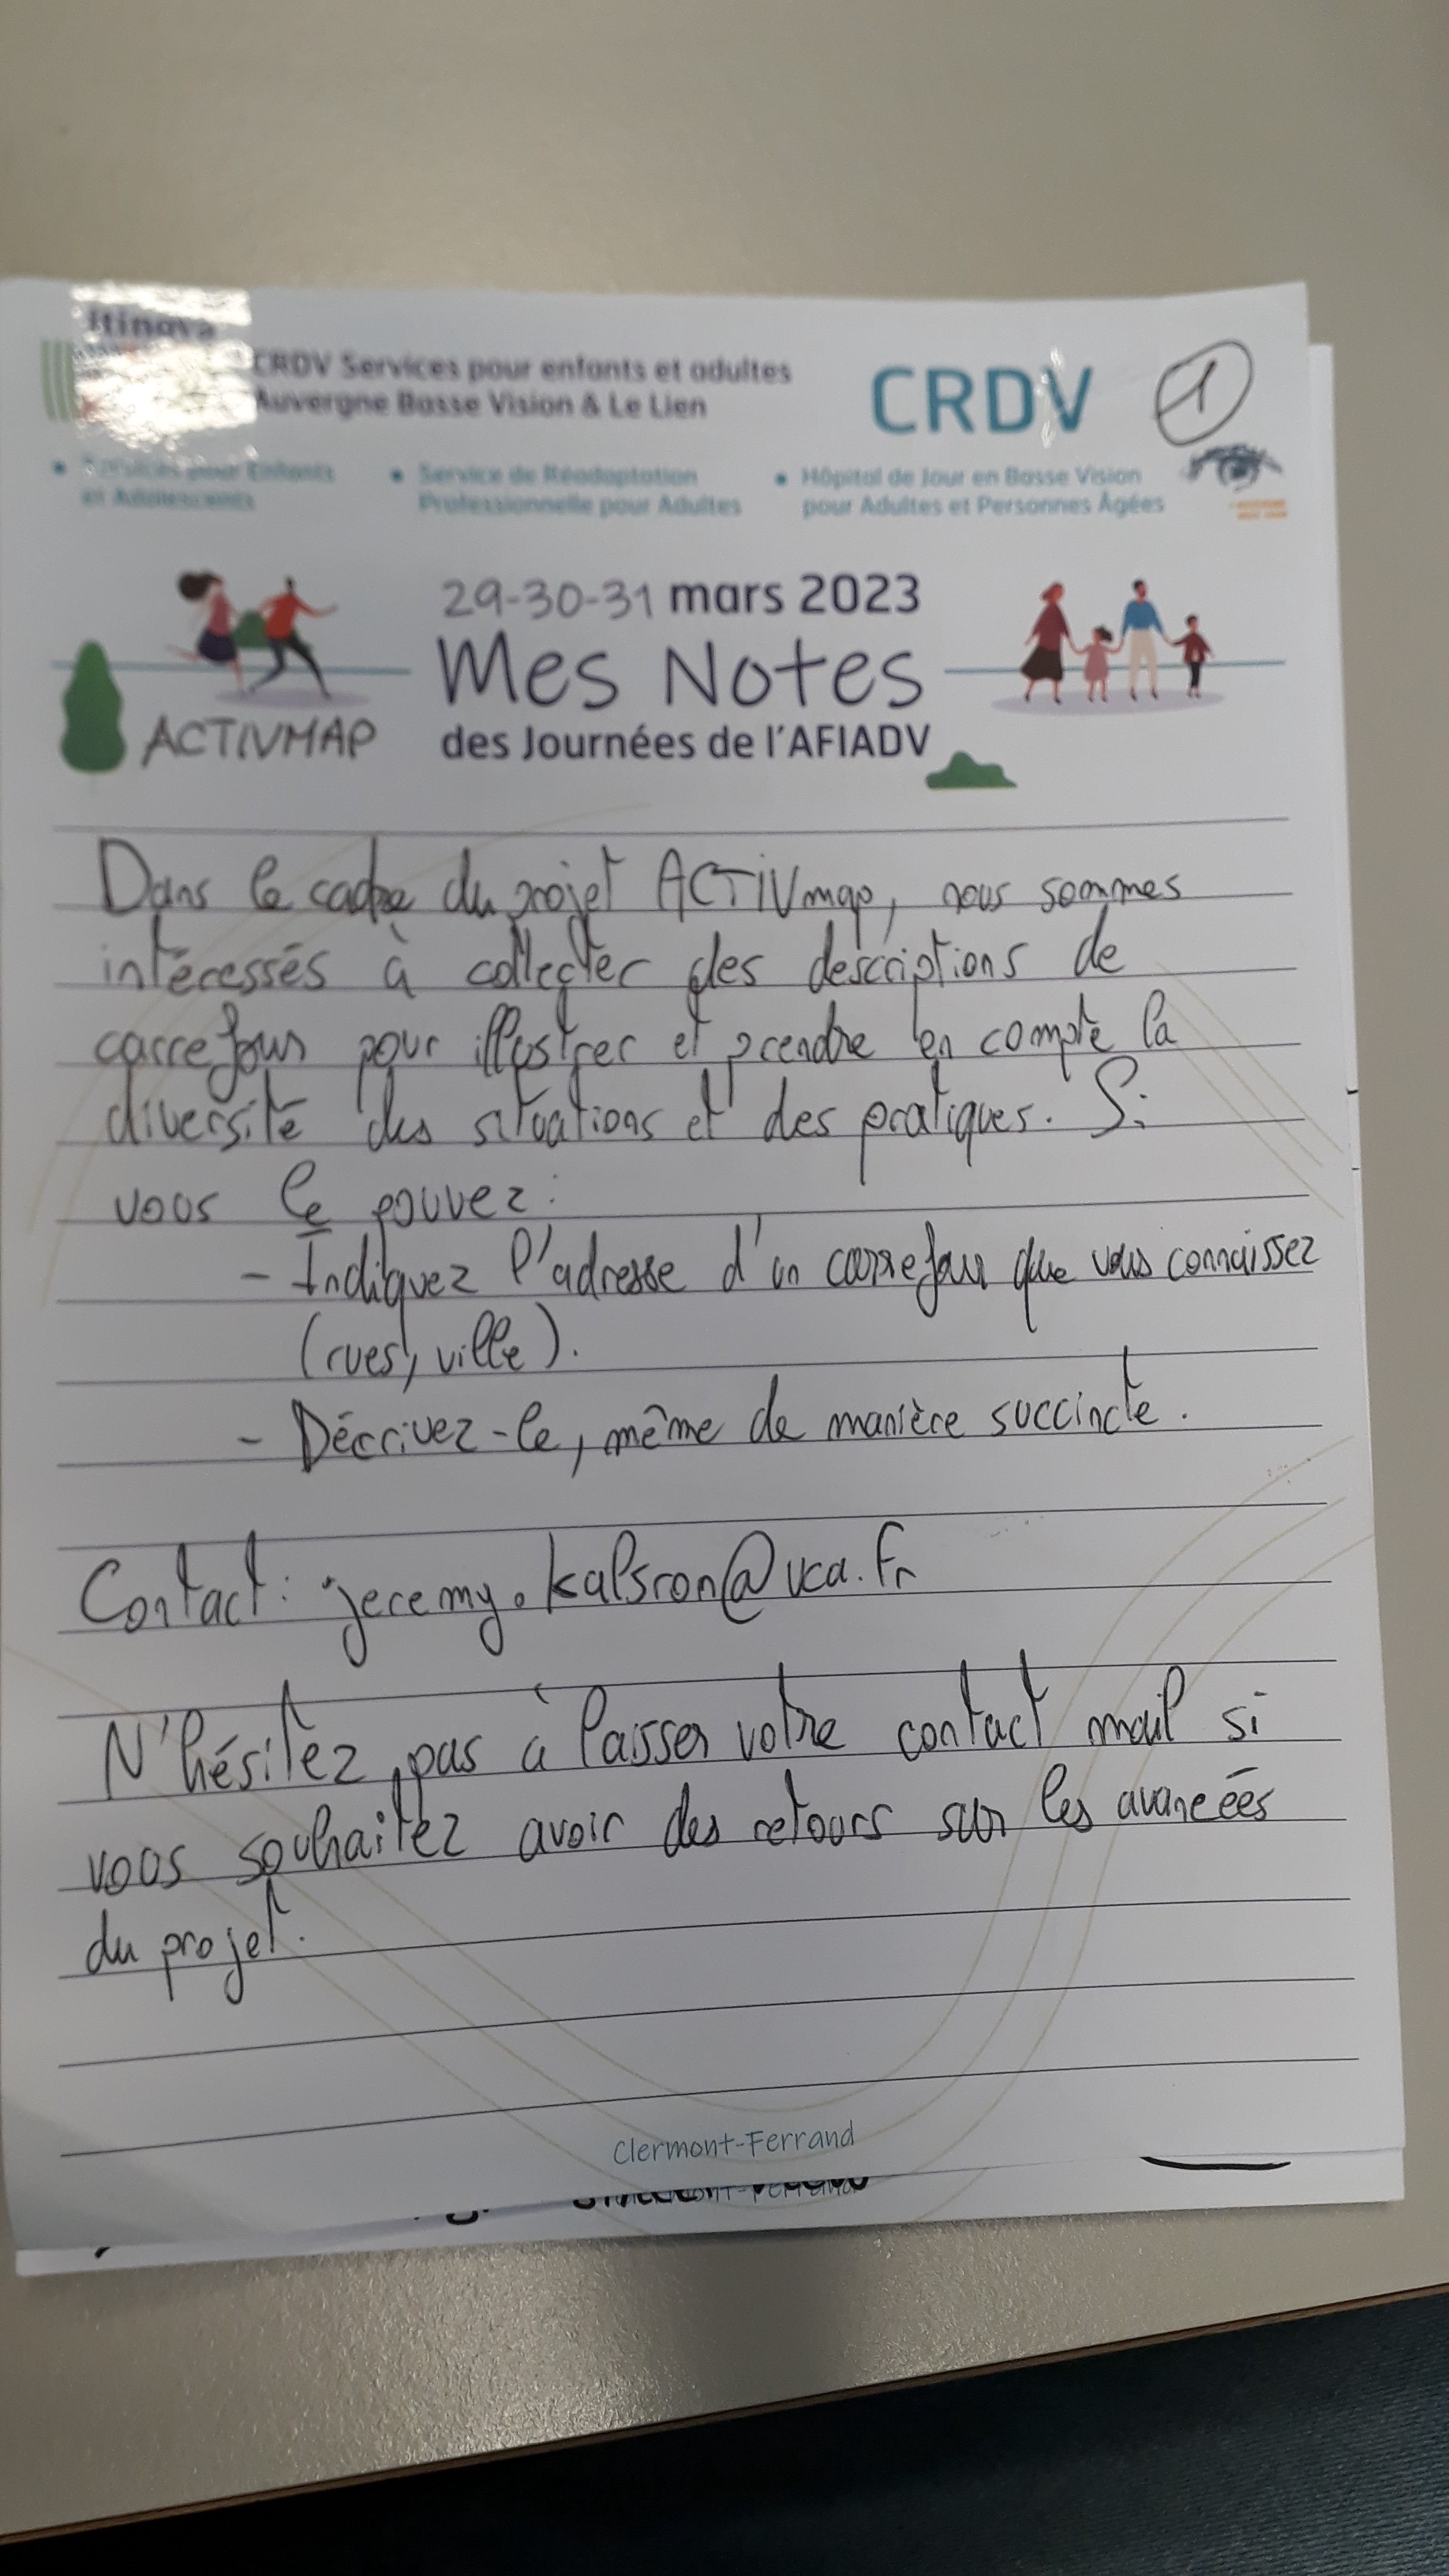 Itinova
CRDV Services pour enfants et adultes
Auvergne Basse Vision & Le Lien
CRDV
1
• Services pour Enfants
et Adolescents
• Service de Réadaptation
Professionnelle pour Adultes
• Hôpital de Jour en Basse Vision
pour Adultes et Personnes Âgées
29-30-31 mars 2023
Mes Notes
des Journées de l'AFIADV
ACTIVMAP
Dans le cadre du projet ACTIVmap, nous sommes
intéressés à collecter des descriptions de
carrefour pour illustrer et prendre en compte la
diversité des situations et des pratiques. Si
vous le pouvez :
- Indiquez l'adresse d'un carrefour que vous connaissez
(rues, ville).
- Décrivez-le, même de manière succincte.
Contact : jeremy.kalsron@uca.fr
N'hésitez pas à laisser votre contact mail si
vous souhaitez avoir des retours sur les avancées
du projet.
Clermont-Ferrand